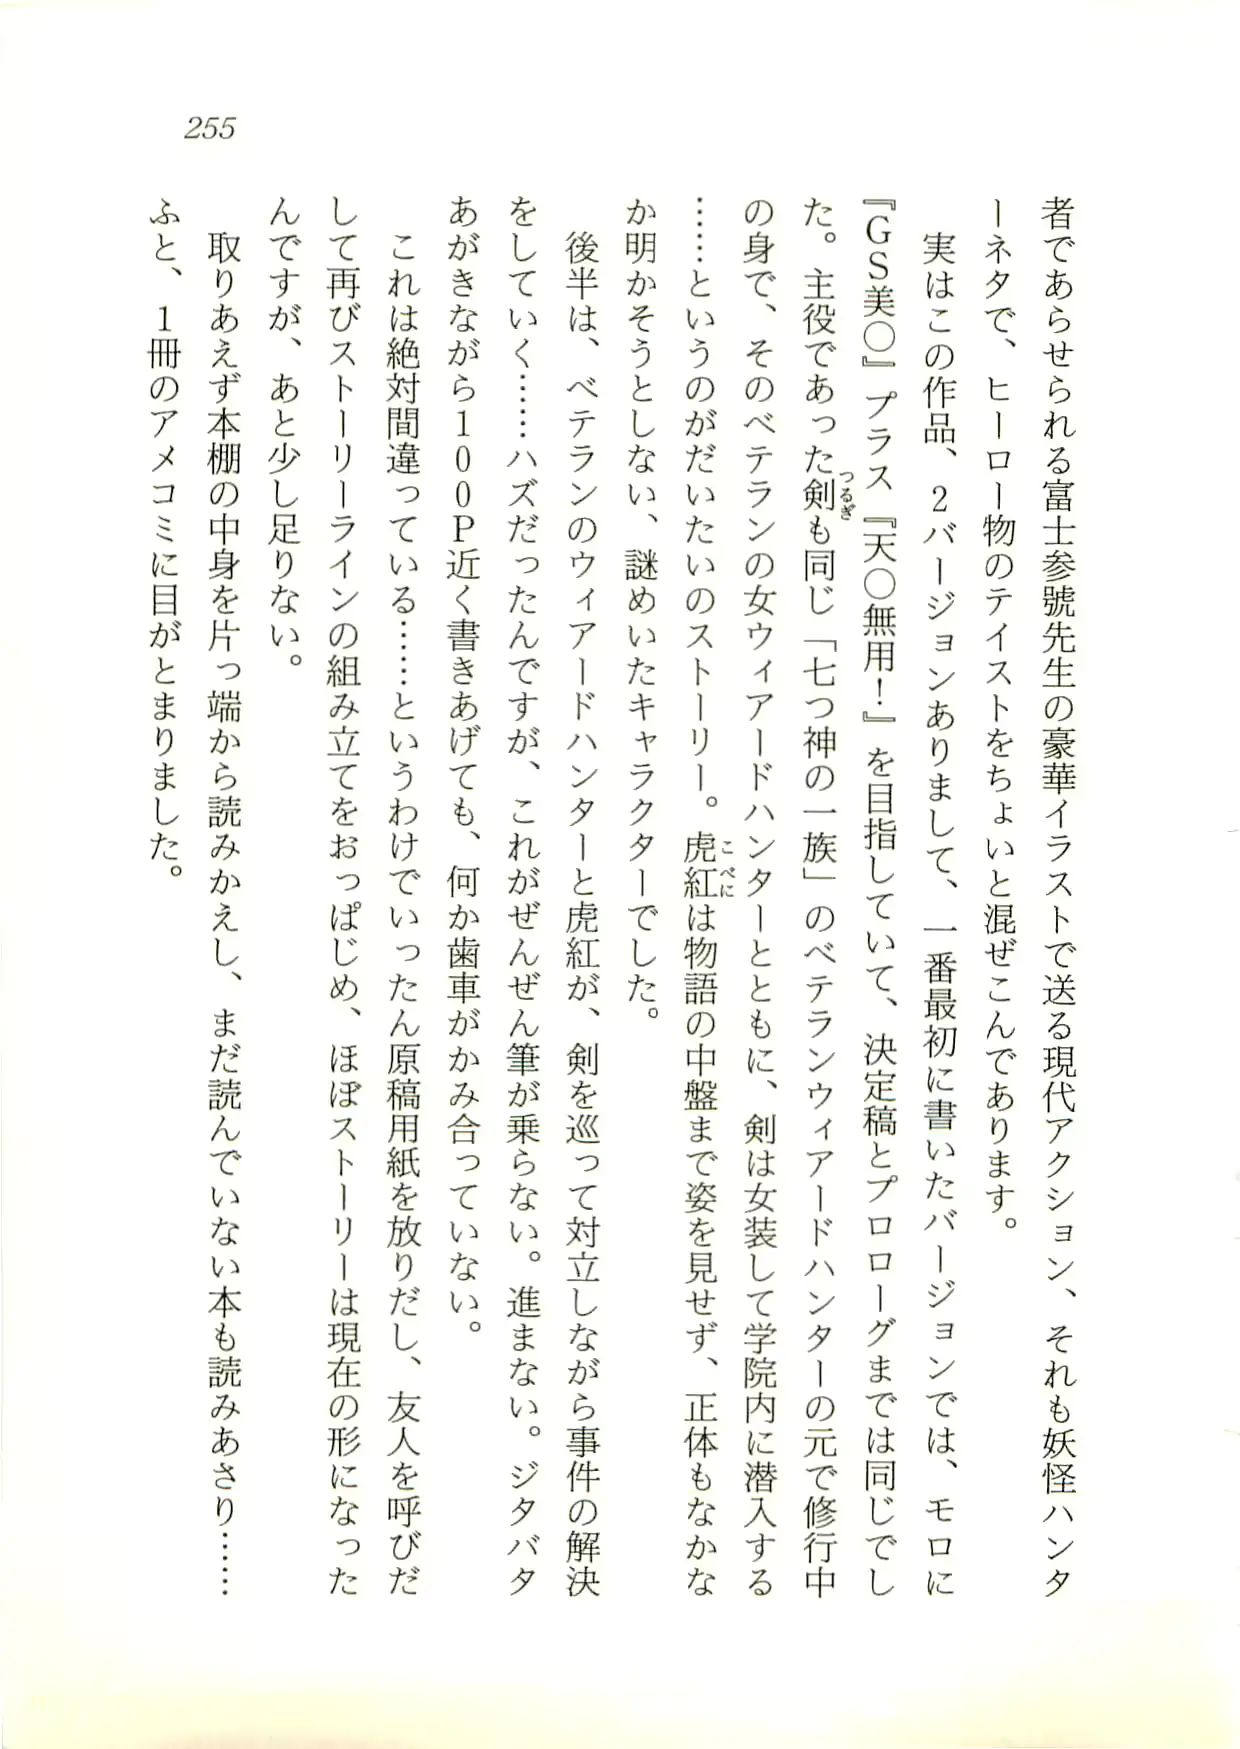 255
者であらせられる富士参號先生の豪華イラストで送る現代アクション、それも妖怪ハンタ
ーネタで、ヒーロー物のテイストをちょいと混ぜこんであります。
　実はこの作品、2バージョンありまして、一番最初に書いたバージョンでは、モロに
『GS美○』プラス『天○無用！』を目指していて、決定稿とプロローグまでは同じでし
た。主役であった剣も同じ「七つ神の一族」のベテランウィアードハンターの元で修行中
つるぎ
の身で、そのベテランの女ウィアードハンターとともに、剣は女装して学院内に潜入する
……というのがだいたいのストーリー。虎紅は物語の中盤まで姿を見せず、正体もなかな
こべに
か明かそうとしない、謎めいたキャラクターでした。
　後半は、ベテランのウィアードハンターと虎紅が、剣を巡って対立しながら事件の解決
をしていく……ハズだったんですが、これがぜんぜん筆が乗らない。進まない。ジタバタ
あがきながら100P近く書きあげても、何か歯車がかみ合っていない。
　これは絶対間違っている……というわけでいったん原稿用紙を放りだし、友人を呼びだ
して再びストーリーラインの組み立てをおっぱじめ、ほぼストーリーは現在の形になった
んですが、あと少し足りない。
　取りあえず本棚の中身を片っ端から読みかえし、まだ読んでいない本も読みあさり……
ふと、1冊のアメコミに目がとまりました。